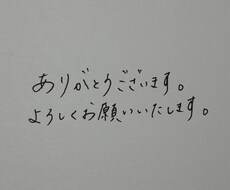 ありがとうございます。
よろしくお願いいたします。